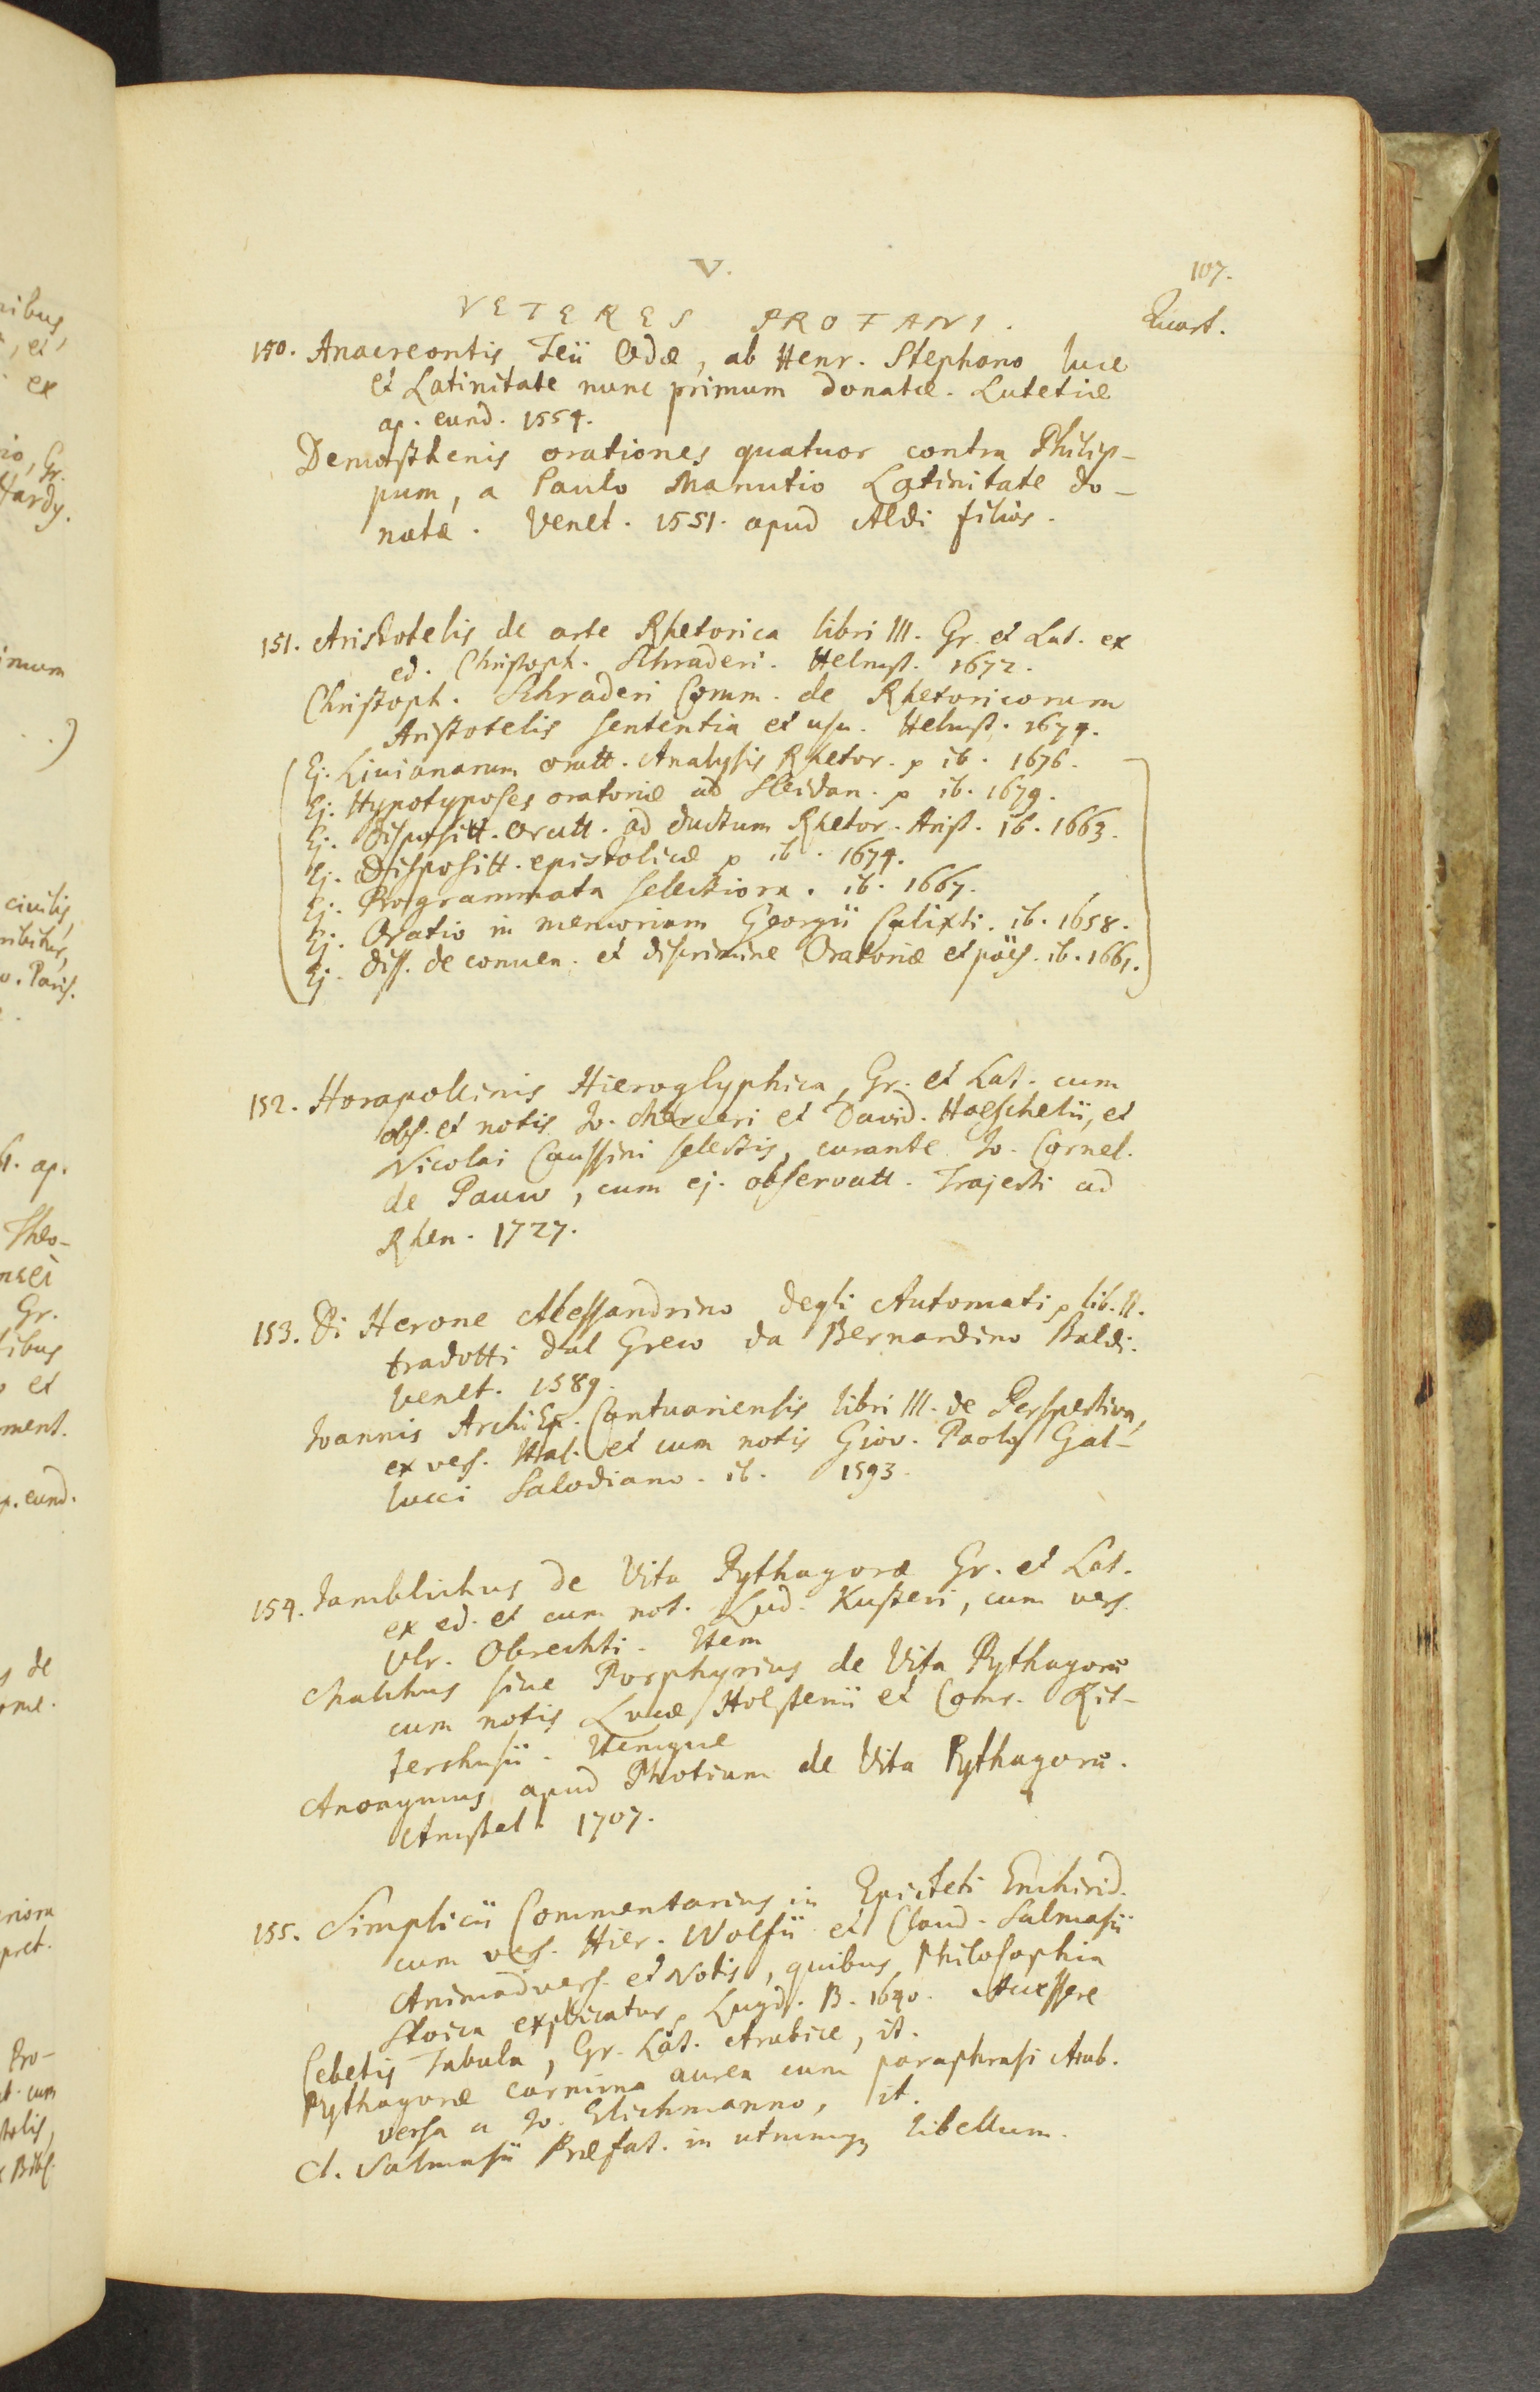 V.
107.
VETERES PROFANI.
Quart.
150. Anacreontis Teii Odæ, ab Henr. Stephano luce
et Latinitate nunc primum donatæ. Lutetiæ
ap. eund. 1554.
Demosthenis orationes quatuor contra Philip-
pum, a Paulo Manutio Latinitate do-
natæ. Venet. 1551. apud Aldi filios.
151. Aristotelis de arte Rhetorica libri III. Gr. et Lat. ex
ed. Christoph. Schraderi. Helmst. 1672.
Christoph. Schraderi Comm. de Rhetoricorum
Aristotelis sententia et usu. Helmst. 1674.
Ej. Liuianarum oratt. Analysis Rhetor. ib. 1676.
Ej. Hypotyposes oratoriæ ad Sleidan. ib. 1679.
Ej. Dispositt. Oratt. ad ductum Rhetor. Arist. ib. 1663.
Ej. Dispositt. epistolicæ ib. 1674.
Ej. Programmata selectiora. ib. 1667.
Ej. Oratio in memoriam Georgii Calixti. ib. 1658.
Ej. Diss. de conuen. et discrimine Oratoriæ et poës. ib. 1661.
152. Horapollinis Hieroglyphica, Gr. et Lat. cum
obs. et notis Jo. Merceri et David. Hoeschelii, et
Nicolai Caussini selectis, curante Jo. Cornel.
de Pauw, cum ej. observatt. Trajecti ad
Rhen. 1727.
153. Di Herone Alessandrino degli Automati, lib. II.
tradotti dal Greco da Bernardino Baldi.
Venet. 1589.
Joannis ArchiEp. Cantuariensis libri III. de Perspectiva,
ex vers. Ital. et cum notis Giov. Paolo Gal-
lucci Salodiano. ib. 1593.
154. Jamblichus de Vita Pythagoræ Gr. et Lat.
ex ed. et cum not. Lud. Kusteri, cum vers.
Ulr. Obrechti. Item
Malchus siue Porphyrius de Vita Pythagoræ
cum notis Lucæ Holstenii et Conr. Rit-
tershusii. Itemque
Anonymus apud Photium de Vita Pythagoræ.
Amstel. 1707.
155. Simplicii Commentarius in Epicteti Enchirid.
cum vers. Hier. Wolfii et Claud. Salmasii
Animadvers. et Notis, quibus Philosophia
Stoica explicatur, Lugd. B. 1640. Accessere
Cebetis Tabula, Gr. Lat. Arabice, it.
Pythagoræ carmina aurea cum paraphrasi Arab.
versa a Jo. Elichmanno, it.
Cl. Salmasii Præfat. in utrumq; libellum.